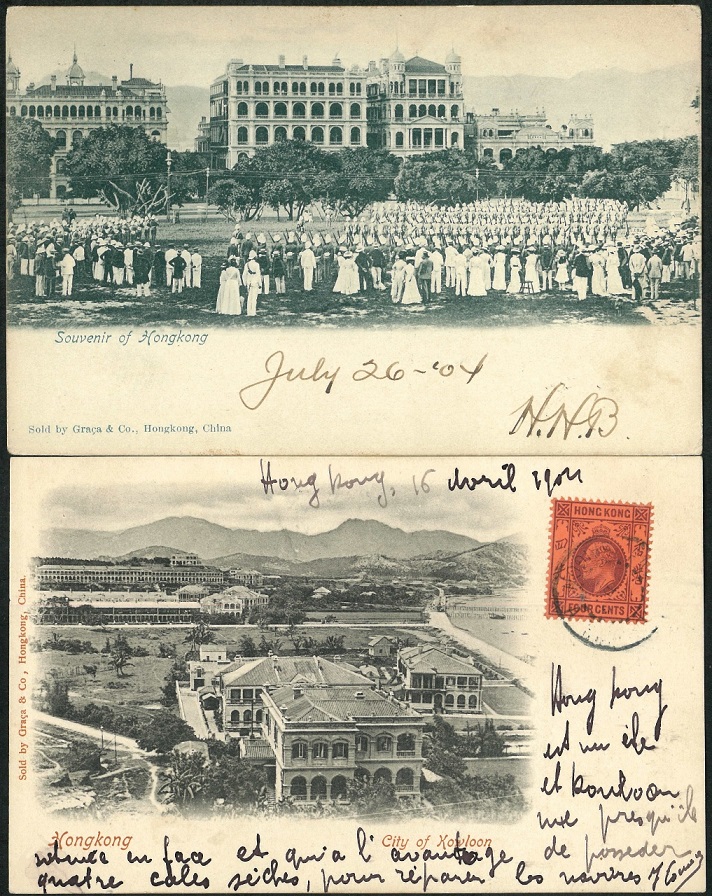 Souvenir of Hongkong
July 26-'04
Sold by Graça & Co., Hongkong, China
H.H.B.
Hong Kong, 16 Avril 1904
HONG KONG
FOUR CENTS
Sold by Graça & Co, Hongkong, China.
Hong Kong
est un île
et Kouloon
une presqu'île
Hongkong
City of Kowloon
située en face et qui a l'avantage de posséder
quatre cales sèches, pour réparer les navires